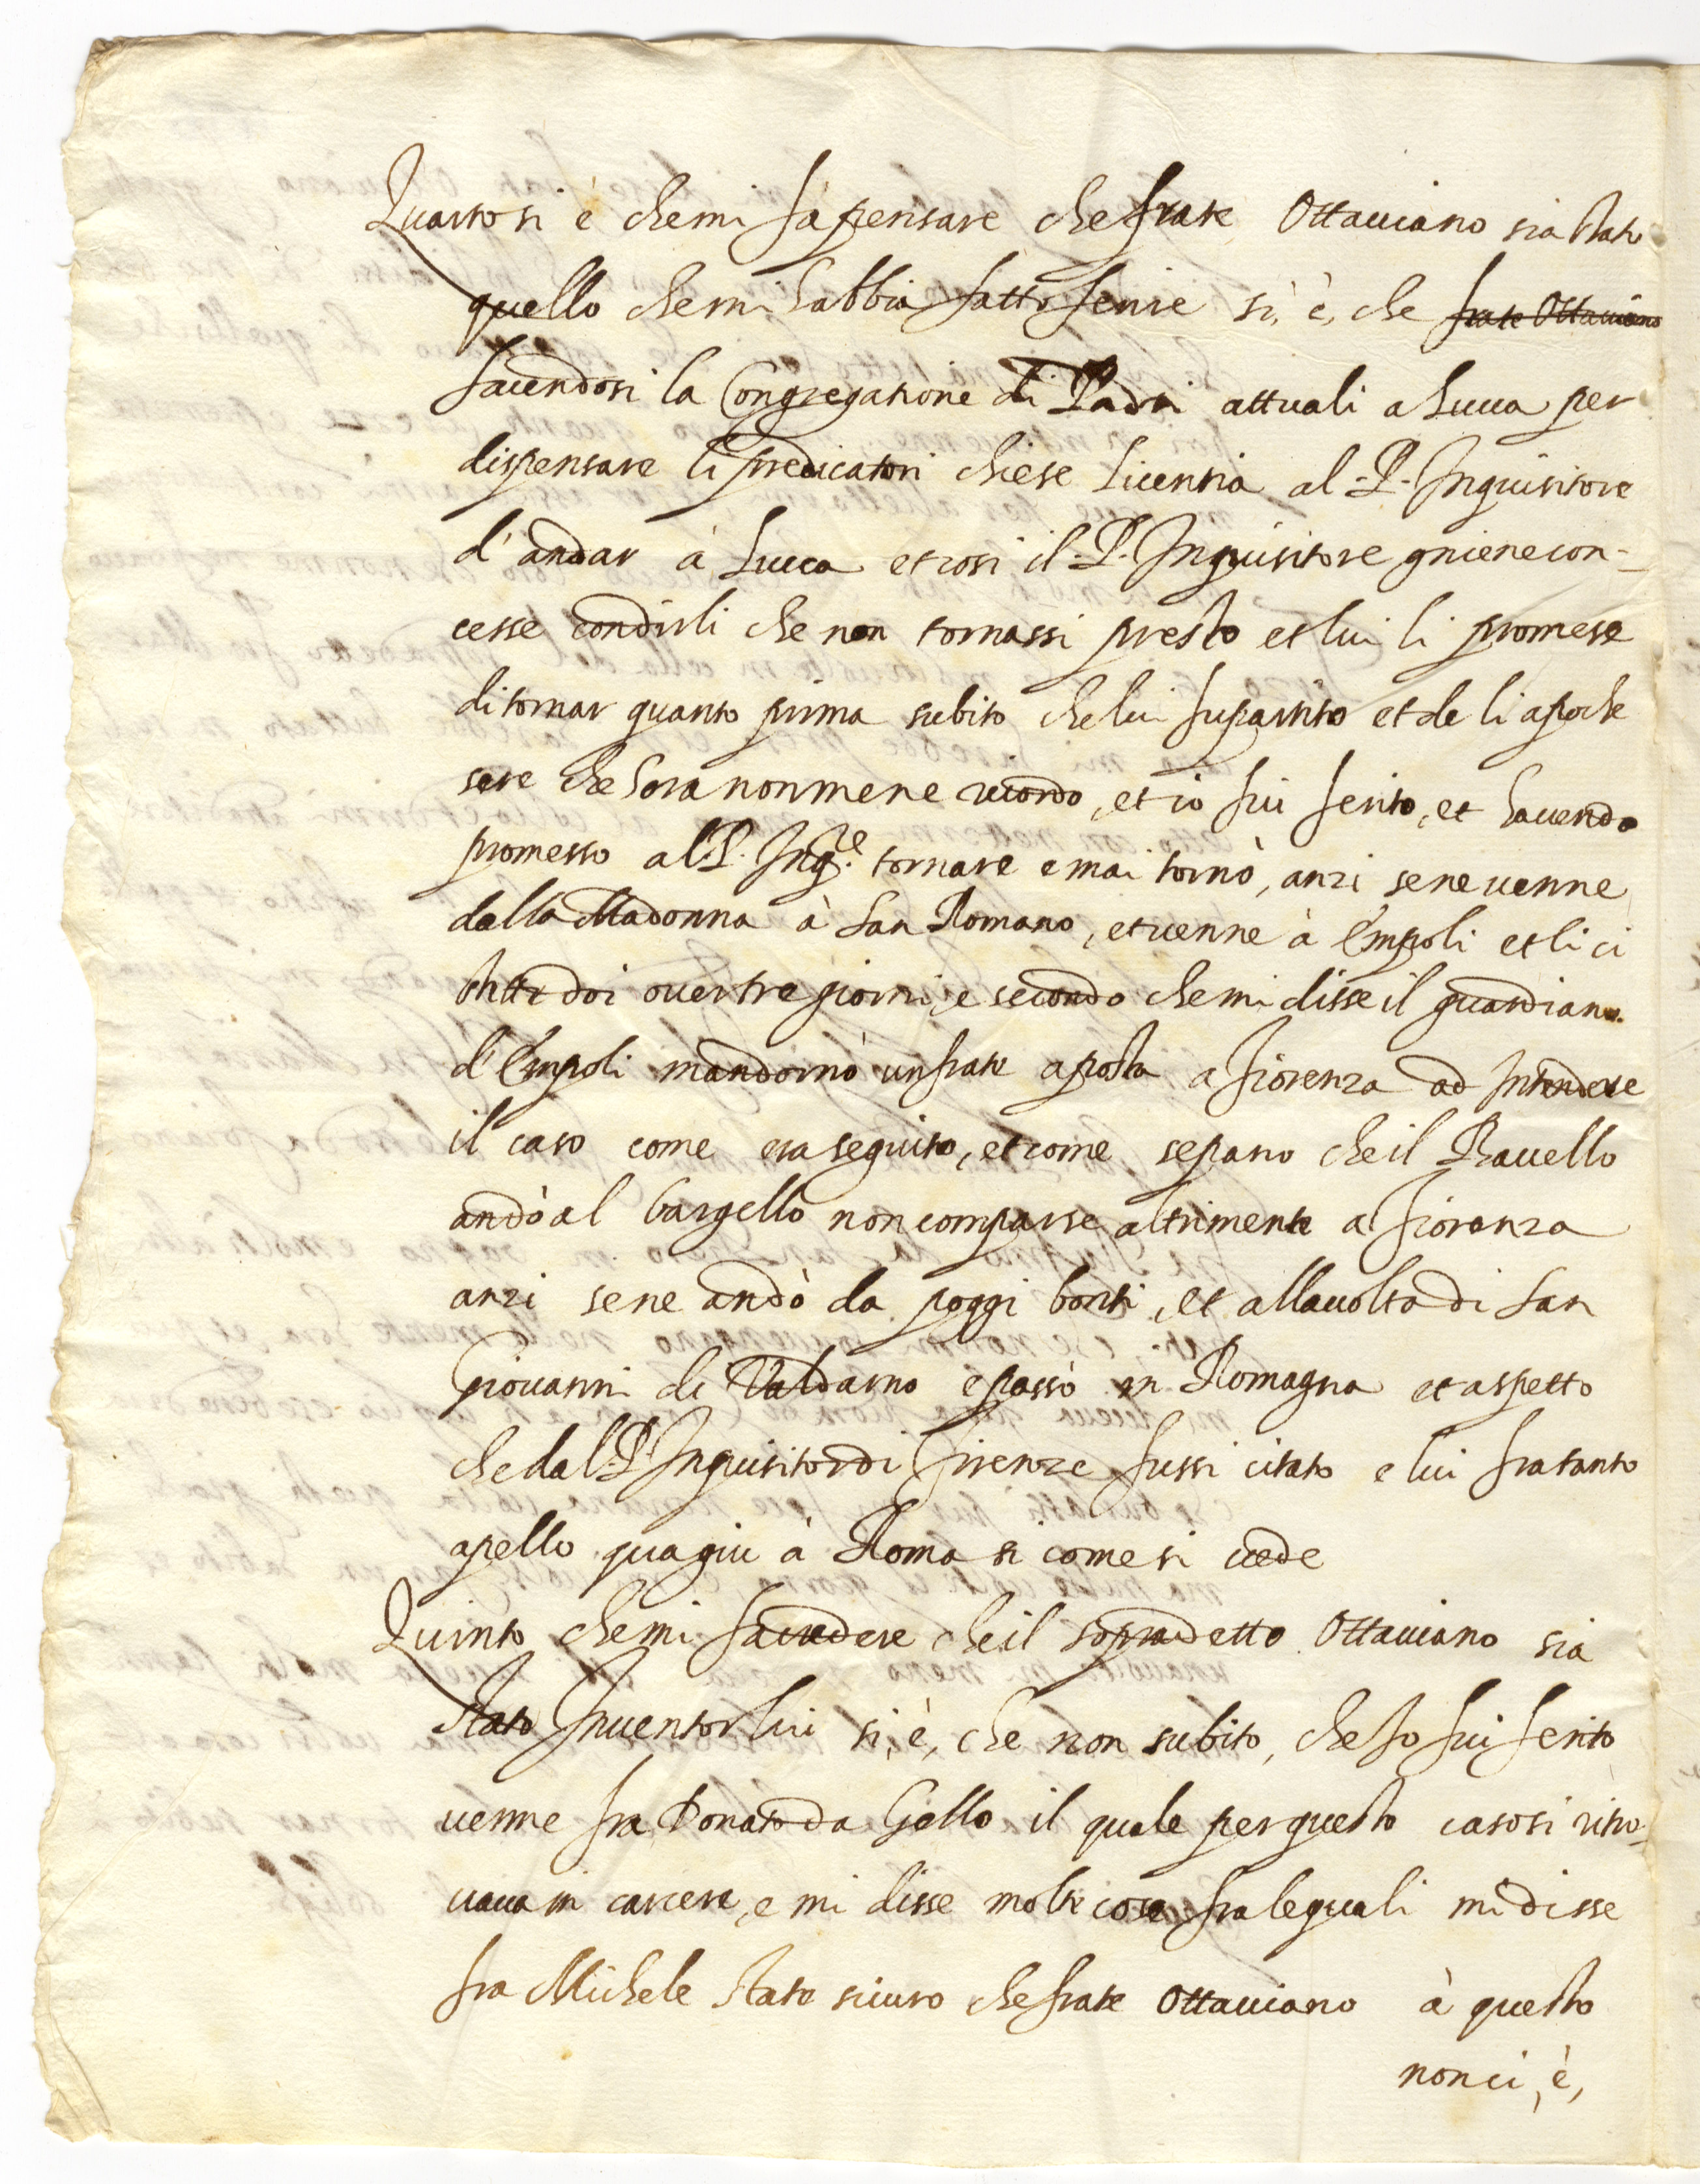 Quarto si è che mi fa pensare che frate Ottauiano sia stato
quello che mi habbia fatto ferire si, è, che frate Ottauiano
facendosi la Congregatione di Padri attuali a Lucca per
dispensare li predicatori chiese licentia al .P. Inquisitore
d'andar à Lucca et cosi il .P. Inquisitore gniene con-
cesse con dirli che non tornassi presto et lui li promese
di tornar quanto prima subito che lui fu partito et de li a poche
sere che hora non mene ricordo, et io fui ferito, et hauendo
promesso al .P. Inq.re tornare e mai tornò, anzi sene uenne
dalla Madonna à San Romano, et uenne à Empoli et li ci
stette doi ouer tre giorni, e secondo che mi disse il guardiano
d'Empoli mandornò un frate aposta a fiorenza ad Intendere
il caso come era seguito, et come sepano che il Rauello
andò al bargello non comparse altrimente a fiorenza
anzi sene andò da poggi bonti, et alla uolta di San
Giouanni di Valdarno e passò in Romagna et aspetto
che dal .P. Inquisitor di firenze fussi citato e lui fra tanto
apello qua giu à Roma si come si uede
Quinto che mi fa credere che il sopradetto Ottauiano sia
stato Inuentor lui si, è, che non subito, che Io fui ferito
uenne fra Donato da Gello il quale per questo caso si ritro-
uaua in carcere, e mi disse molte cose fra le quali mi disse
fra Michele state sicuro che frate Ottauiano à questo
non ci, è,